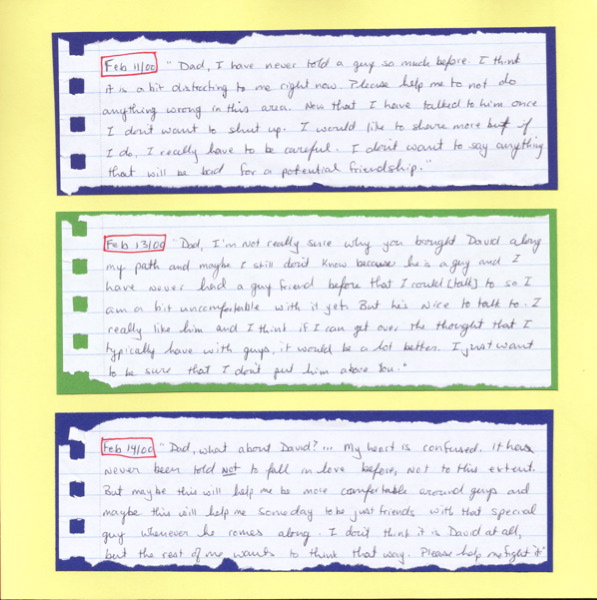 Feb 11/00 "Dad, I have never told a guy so much before. I think
it is a bit distracting to me right now. Please help me to not do
anything wrong in this area. Now that I have talked to him once
I don't want to shut up. I would like to share more but if
I do, I really have to be careful. I don't want to say anything
that will be bad for a potential friendship."
Feb 13/00 "Dad, I'm not really sure why you brought David along
my path and maybe I still don't know because he is a guy and I
have never had a guy friend before that I could [talk] to so I
am a bit uncomfortable with it yet. But he's nice to talk to. I
really like him and I think if I can get over the thought that I
typically have with guys, it would be a lot better. I just want
to be sure that I don't put him above You."
Feb 14/00 "Dad, what about David?... My heart is confused. It has
never been told not to fall in love before, not to this extent.
But maybe this will help me be more comfortable around guys and
maybe this will help me someday to be just friends with that special
guy whenever he comes along. I don't think it is David at all,
but the rest of me wants to think that way. Please help me fight it"